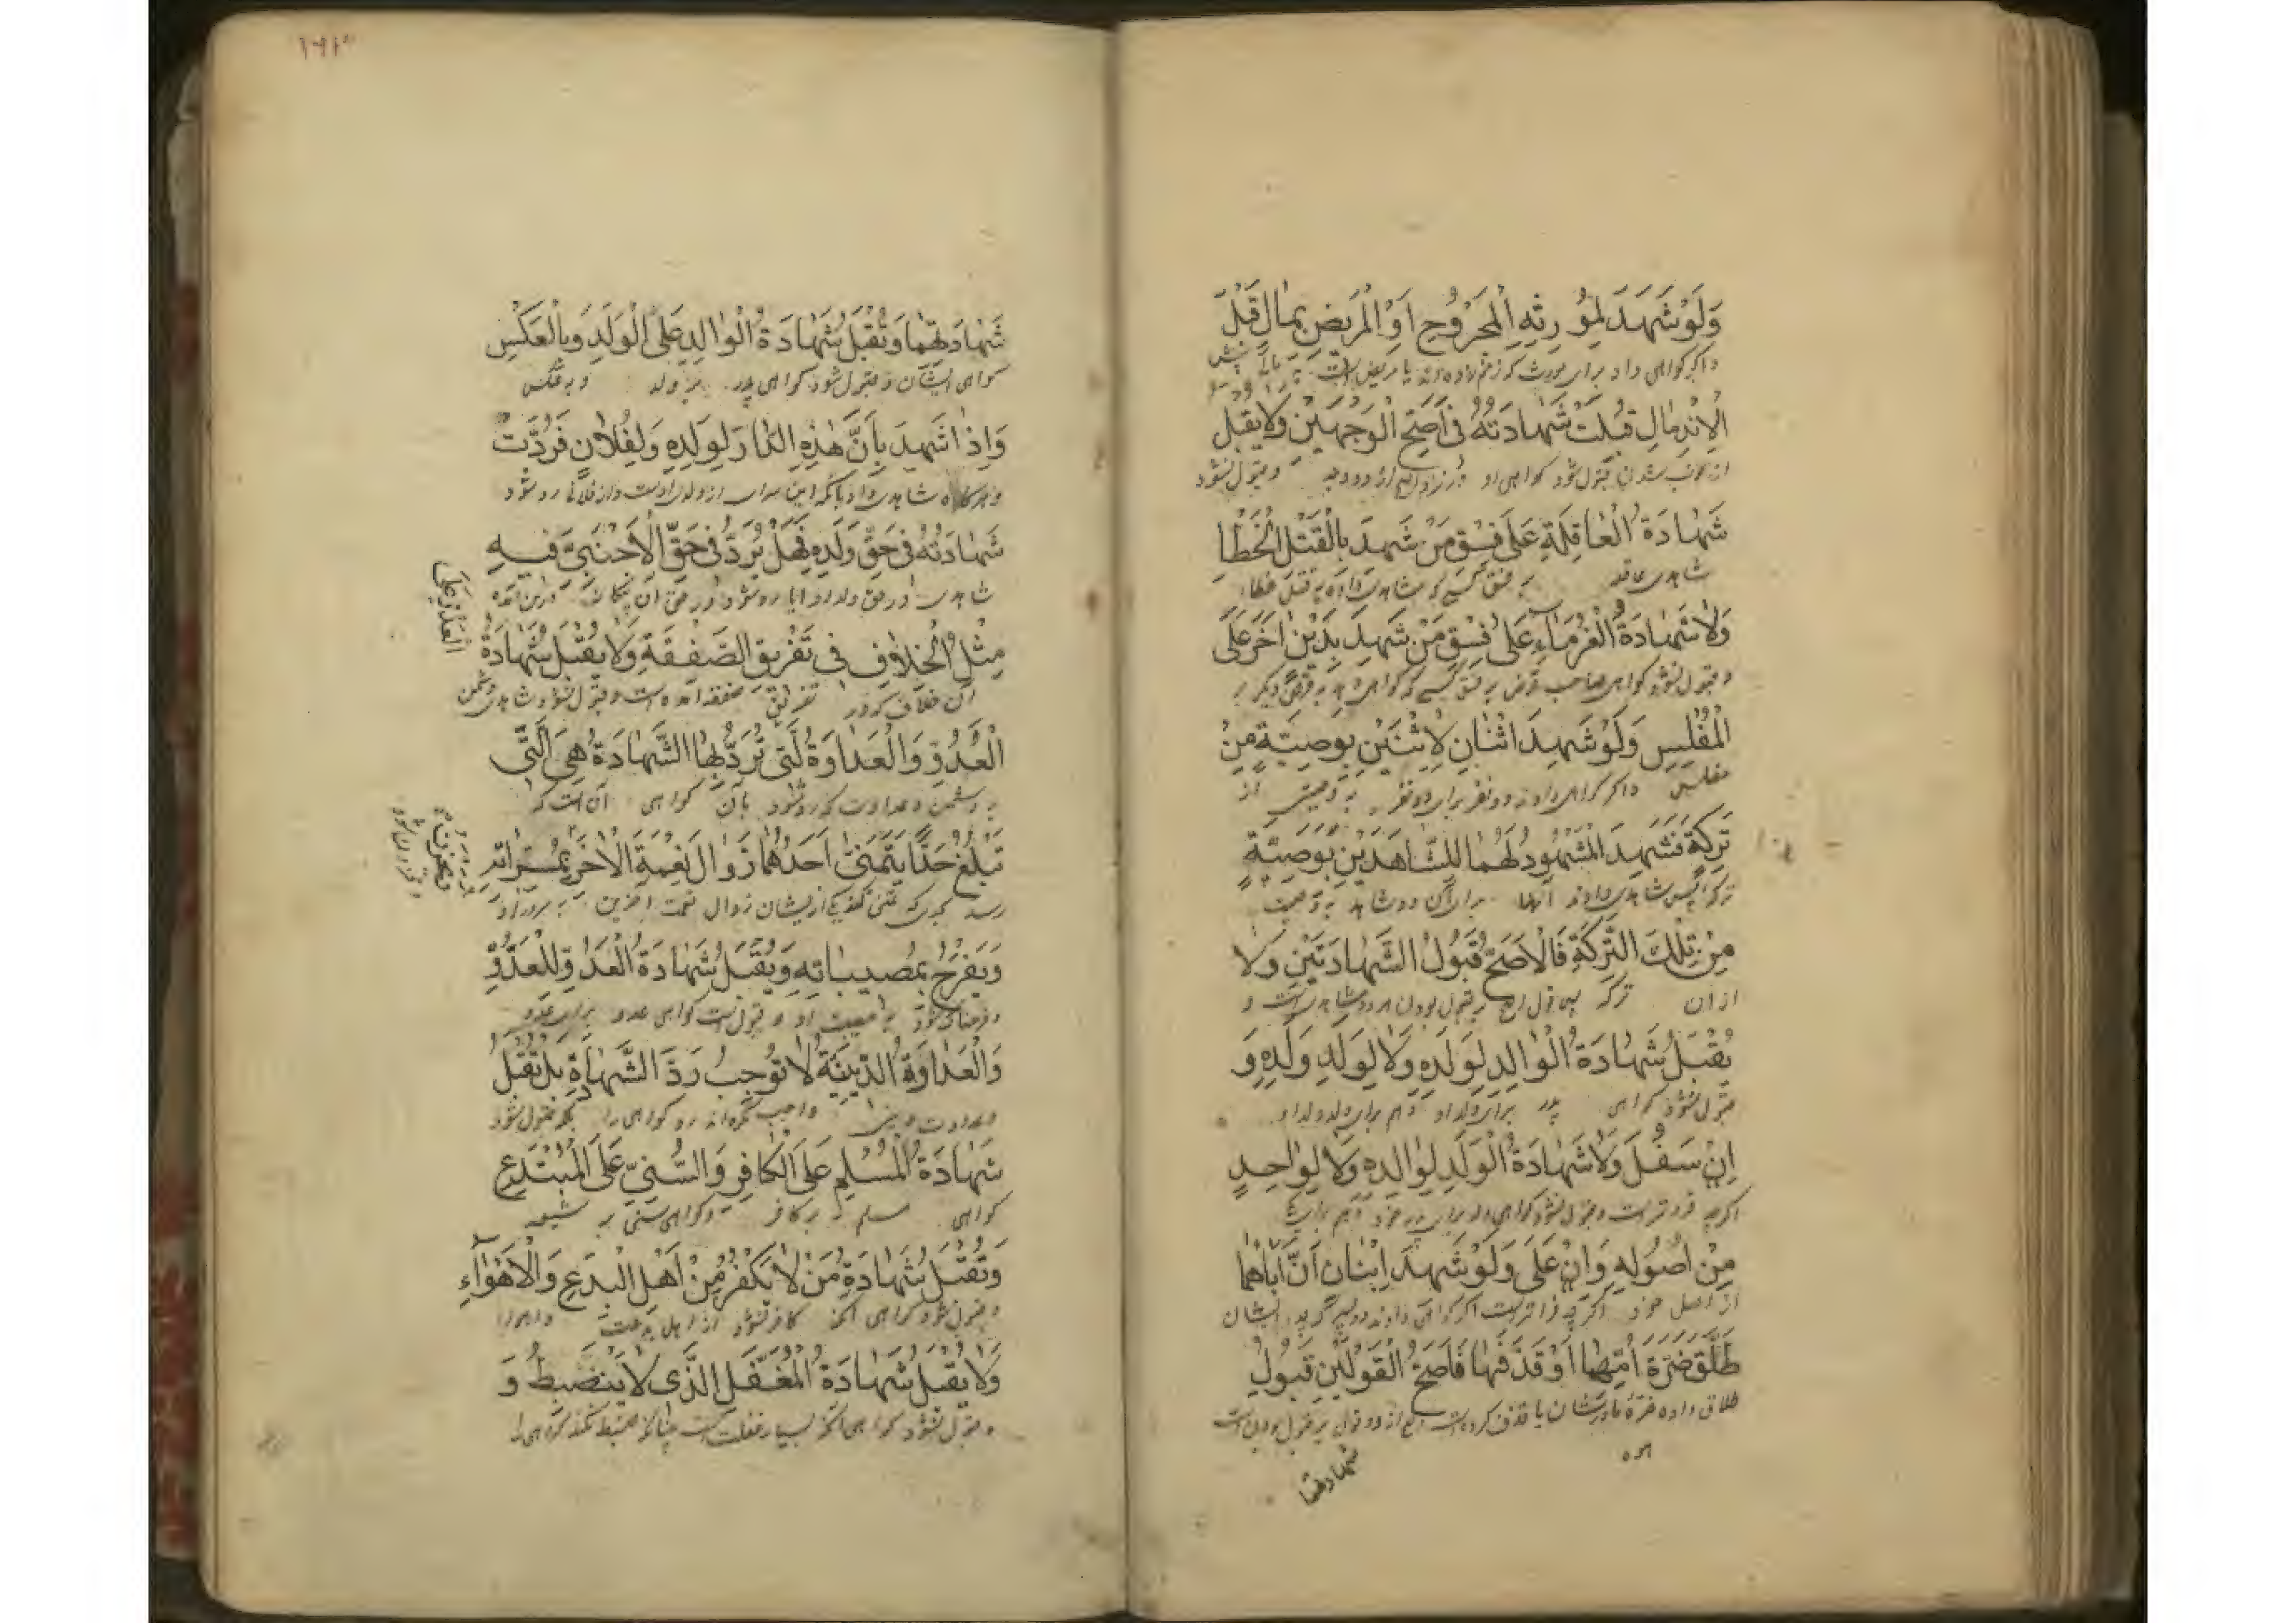 وَلَوْ شَهِدَ لِمُوَرِّثِهِ الْمَجْرُوحِ اَوِ الْمَرِيضِ بِمَالٍ قَبْلَ
الْاِنْدِمَالِ قُبِلَتْ شَهَادَتُهُ فِي اَصَحِّ الْوَجْهَيْنِ وَلَا يُقْبَلُ
از خوب شدن قبول شود کواهی او در نزد اصح از دو وجه و قبول نشود
شَهَادَةُ الْعَاقِلَةِ عَلَى فِسْقِ مَنْ شَهِدَ بِالْقَتْلِ الْخَطَاِ
شاهدی عاقله به فسق کسی که شاهدی داده به قتل خطا
وَلَا شَهَادَةُ الْغُرَمَاءِ عَلَى فِسْقِ مَنْ شَهِدَ بِدَيْنٍ اٰخَرَ عَلَى
و قبول نشود کواهی صاحب قرض به فسق کسی که کواهی دهد به قرض دیکر بر
الْمُفْلِسِ وَلَوْ شَهِدَ اثْنَانِ لِاثْنَيْنِ بِوَصِيَّةٍ مِنْ
مفلس و اکر کواهی دادند دو نفر برای دو نفر به وصیتی از
تَرِكَةٍ فَشَهِدَ الْمَشْهُودُ لَهُمَا لِلشَّاهِدَيْنِ بِوَصِيَّةٍ
ترکه پس شاهدی دادند آنها برای آن دو شاهد به وصیت
مِنْ تِلْكَ التَّرِكَةِ فَالْاَصَحُّ قَبُولُ الشَّهَادَتَيْنِ وَلَا
از ان ترکه پس قول اصح بر قبول بودن هر دو شاهدی است و
يُقْبَلُ شَهَادَةُ الْوَالِدِ لِوَلَدِهِ وَلَا لِوَلَدِ وَلَدِهِ وَ
قبول نشود کواهی پدر برای ولد او و هم برای ولد ولد او
اِنْ سَفُلَ وَلَا شَهَادَةُ الْوَلَدِ لِوَالِدِهِ وَلَا لِوَاحِدٍ
اکرچه فروتر است و قبول نشود کواهی ولد برای پدر خود و هم برای یکی
مِنْ اُصُولِهِ وَاِنْ عَلَى وَلَوْ شَهِدَ اِبْنَانِ اَنَّ اَبَاهُمَا
از اصل خود اکرچه فراتر است اکر کواهی دادند دو پسر که پدر ایشان
طَلَّقَ ضَرَّةَ اُمِّهِمَا اَوْ قَذَفَهَا فَاَصَحُّ الْقَوْلَيْنِ قَبُولُ
طلاق داده ضرهٔ مادرشان یا قذف کرده است اصح از دو قول بر قبول بودن است
شهادتهما
شَهَادَتِهِمَا وَتُقْبَلُ شَهَادَةُ الْوَالِدِ عَلَى الْوَلَدِ وَبِالْعَكْسِ
کواهی ایشان و قبول شود کواهی پدر بر ولد و به عکس
وَاِذَا شَهِدَ بِاَنَّ هٰذِهِ الدَّارَ لِوَلَدِهِ وَلِفُلَانٍ فَرُدَّتْ
شَهَادَتُهُ فِي حَقِّ وَلَدِهِ فَهَلْ يُرَدُّ فِي حَقِّ الْاَجْنَبِيِّ فِيهِ
مِثْلُ الْخِلَافِ فِي تَفْرِيقِ الصَّفْقَةِ وَلَا يُقْبَلُ شَهَادَةُ
آن خلاف که در تفریق صفقه آمده است و قبول نشود شاهدی دشمن
العدو على
الْعَدُوِّ وَالْعَدَاوَةُ الَّتِي تُرَدُّ بِهَا الشَّهَادَةُ هِيَ الَّتِي
به دشمن و عداوت که رد شود بآن کواهی آن است که
تَبْلُغُ حَدًّا يَتَمَنَّى اَحَدُهُمَا زَوَالَ نِعْمَةِ الْاٰخَرِ بِمَسَرَّاتِهِ
ويحزن
وَيَفْرَحُ بِمُصِيبَاتِهِ وَيُقْبَلُ شَهَادَةُ الْعَدُوِّ لِلْعَدُوِّ
و فرحناک شود به مصیبت او و قبول است کواهی عدو برای عدو
وَالْعَدَاوَةُ الدِّينِيَّةُ لَا تُوجِبُ رَدَّ الشَّهَادَةِ بَلْ تُقْبَلُ
و عداوت دینی واجب نکرداند رد کواهی را بلکه قبول شود
شَهَادَةُ الْمُسْلِمِ عَلَى الْكَافِرِ وَالسُّنِّيِّ عَلَى الْمُبْتَدِعِ
کواهی مسلم بر کافر و کواهی سنی بر شیعه
وَتُقْبَلُ شَهَادَةُ مَنْ لَا يَكْفُرُ مِنْ اَهْلِ الْبِدَعِ وَالْاَهْوَاءِ
و قبول شود کواهی آنکه کافر نشود از اهل بدعت و اهوا
وَلَا يُقْبَلُ شَهَادَةُ الْمُغَفَّلِ الَّذِي لَا يَنْضَبِطُ وَ
و قبول نشود کواهی آنکه بسیار غفلت است چنانکه ضبط نکند کواهی را